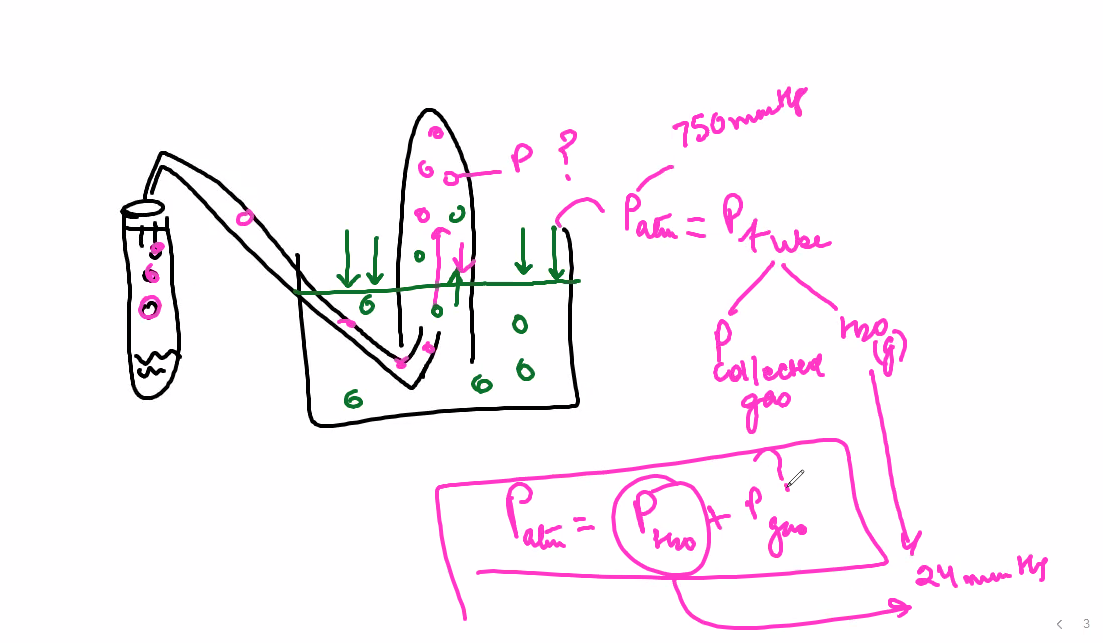 750 mmHg
P ?
Patm = Ptube
P collected gas
H2O (g)
Patm = PH2O + Pgas
?
24 mm Hg
< 3